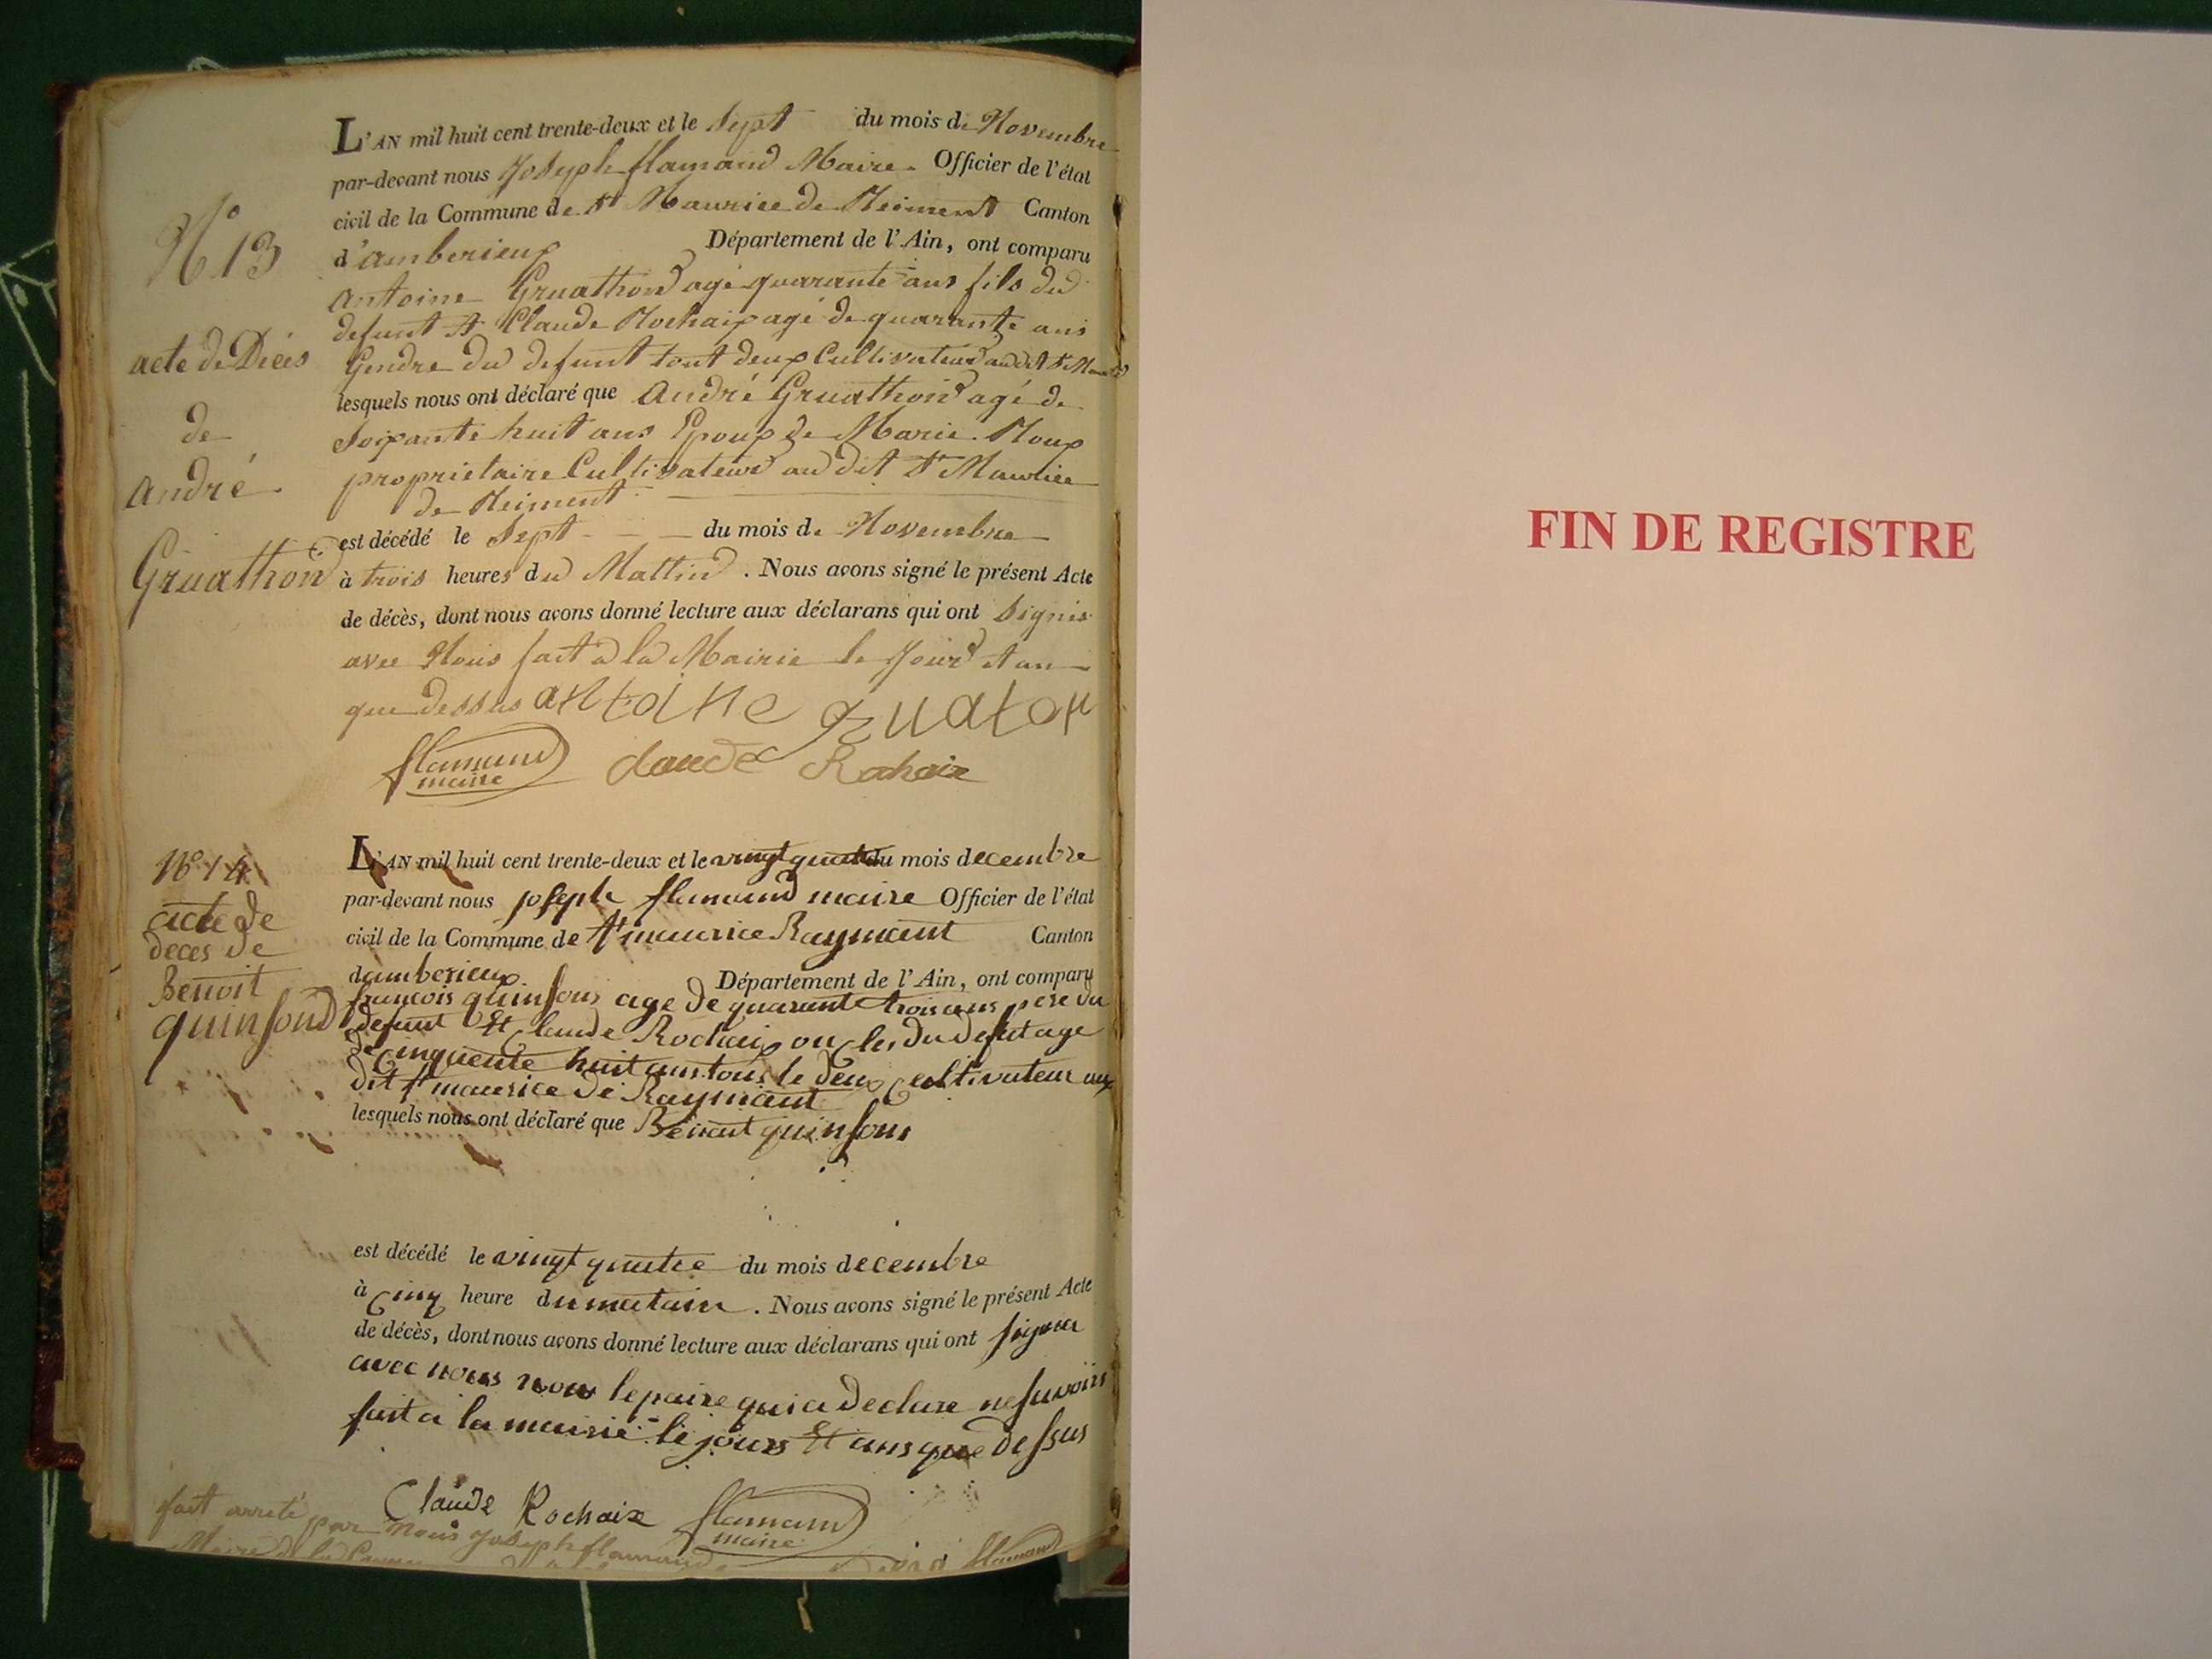 L'AN mil huit cent trente-deux et le Sept du mois de Novembre
par-devant nous Joseph flamand Maire Officier de l'état
civil de la Commune de St Maurice de Reiment Canton
d'amberieux Département de l'Ain, ont comparu
N° 13
antoine Gruathon agé quarante ans fils du
defunt et Claude Rochaix agé de quarante ans
acte de Déces
Gendre du defunt tout deux Cultivateur au dit St
lesquels nous ont déclaré que André Gruathon agé de
de
Soixante huit ans Epoux de Marie Roux
andré
proprietaire Cultivateur au dit St Maurice
de Reiment
Gruathon
est décédé le Sept du mois de Novembre
à trois heures du Mattin. Nous avons signé le présent Acte
de décès, dont nous avons donné lecture aux déclarans qui ont Signés
avec Nous fait a la Mairie le Jour et an
que dessus antoine gruaton
flamand maire claude Rochaix
N° 14
L'AN mil huit cent trente-deux et le vingt quatre du mois decembre
par-devant nous joseph flamand maire Officier de l'état
acte de
civil de la Commune de St maurice Raymant Canton
deces de
damberieux Département de l'Ain, ont comparu
Benoit
francois quinson age de quarante trois ans pere du
quinsond
defunt Et Claude Rochaix oncles du defut age
de Cinquente huit ans tous le deux Cultivateur aux
dit st maurice de Raymant
lesquels nous ont déclaré que quinson
est décédé le vingt quatre du mois decembre
à Cinq heure du matain. Nous avons signé le présent Acte
de décès, dont nous avons donné lecture aux déclarans qui ont signer
avec nous non le paire qui a declare ne savoir
fait a la mairie le jours Et ans que dessus
Claude Rochaix flamand maire
fait arreté par nous Joseph flamand
Maire de la
flamand
FIN DE REGISTRE